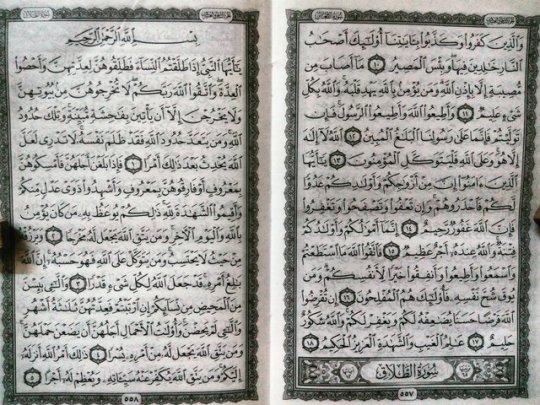 سُورَةُ التَّغَابُنِ
وَٱلَّذِينَ كَفَرُوا۟ وَكَذَّبُوا۟ بِـَٔايَـٰتِنَآ أُو۟لَـٰٓئِكَ أَصْحَـٰبُ
ٱلنَّارِ خَـٰلِدِينَ فِيهَا وَبِئْسَ ٱلْمَصِيرُ ١٠ مَآ أَصَابَ مِن
مُّصِيبَةٍ إِلَّا بِإِذْنِ ٱللَّهِ وَمَن يُؤْمِنۢ بِٱللَّهِ يَهْدِ قَلْبَهُۥ وَٱللَّهُ بِكُلِّ
شَىْءٍ عَلِيمٌ ١١ وَأَطِيعُوا۟ ٱللَّهَ وَأَطِيعُوا۟ ٱلرَّسُولَ فَإِن
تَوَلَّيْتُمْ فَإِنَّمَا عَلَىٰ رَسُولِنَا ٱلْبَلَـٰغُ ٱلْمُبِينُ ١٢ ٱللَّهُ لَآ إِلَـٰهَ
إِلَّا هُوَ وَعَلَى ٱللَّهِ فَلْيَتَوَكَّلِ ٱلْمُؤْمِنُونَ ١٣ يَـٰٓأَيُّهَا
ٱلَّذِينَ ءَامَنُوٓا۟ إِنَّ مِنْ أَزْوَٰجِكُمْ وَأَوْلَـٰدِكُمْ عَدُوًّا
لَّكُمْ فَٱحْذَرُوهُمْ وَإِن تَعْفُوا۟ وَتَصْفَحُوا۟ وَتَغْفِرُوا۟
فَإِنَّ ٱللَّهَ غَفُورٌ رَّحِيمٌ ١٤ إِنَّمَآ أَمْوَٰلُكُمْ وَأَوْلَـٰدُكُمْ
فِتْنَةٌ وَٱللَّهُ عِندَهُۥٓ أَجْرٌ عَظِيمٌ ١٥ فَٱتَّقُوا۟ ٱللَّهَ مَا ٱسْتَطَعْتُمْ
وَٱسْمَعُوا۟ وَأَطِيعُوا۟ وَأَنفِقُوا۟ خَيْرًا لِّأَنفُسِكُمْ وَمَن
يُوقَ شُحَّ نَفْسِهِۦ فَأُو۟لَـٰٓئِكَ هُمُ ٱلْمُفْلِحُونَ ١٦ إِن تُقْرِضُوا۟
ٱللَّهَ قَرْضًا حَسَنًا يُضَـٰعِفْهُ لَكُمْ وَيَغْفِرْ لَكُمْ وَٱللَّهُ شَكُورٌ
حَلِيمٌ ١٧ عَـٰلِمُ ٱلْغَيْبِ وَٱلشَّهَـٰدَةِ ٱلْعَزِيزُ ٱلْحَكِيمُ ١٨
سُورَةُ الطَّلَاقِ
٥٥٧
سُورَةُ الطَّلَاقِ
بِسْمِ ٱللَّهِ ٱلرَّحْمَـٰنِ ٱلرَّحِيمِ
يَـٰٓأَيُّهَا ٱلنَّبِىُّ إِذَا طَلَّقْتُمُ ٱلنِّسَآءَ فَطَلِّقُوهُنَّ لِعِدَّتِهِنَّ وَأَحْصُوا۟
ٱلْعِدَّةَ وَٱتَّقُوا۟ ٱللَّهَ رَبَّكُمْ لَا تُخْرِجُوهُنَّ مِنۢ بُيُوتِهِنَّ
وَلَا يَخْرُجْنَ إِلَّآ أَن يَأْتِينَ بِفَـٰحِشَةٍ مُّبَيِّنَةٍ وَتِلْكَ حُدُودُ
ٱللَّهِ وَمَن يَتَعَدَّ حُدُودَ ٱللَّهِ فَقَدْ ظَلَمَ نَفْسَهُۥ لَا تَدْرِى لَعَلَّ
ٱللَّهَ يُحْدِثُ بَعْدَ ذَٰلِكَ أَمْرًا ١ فَإِذَا بَلَغْنَ أَجَلَهُنَّ فَأَمْسِكُوهُنَّ
بِمَعْرُوفٍ أَوْ فَارِقُوهُنَّ بِمَعْرُوفٍ وَأَشْهِدُوا۟ ذَوَىْ عَدْلٍ مِّنكُمْ
وَأَقِيمُوا۟ ٱلشَّهَـٰدَةَ لِلَّهِ ذَٰلِكُمْ يُوعَظُ بِهِۦ مَن كَانَ يُؤْمِنُ
بِٱللَّهِ وَٱلْيَوْمِ ٱلْـَٔاخِرِ وَمَن يَتَّقِ ٱللَّهَ يَجْعَل لَّهُۥ مَخْرَجًا ٢ وَيَرْزُقْهُ
مِنْ حَيْثُ لَا يَحْتَسِبُ وَمَن يَتَوَكَّلْ عَلَى ٱللَّهِ فَهُوَ حَسْبُهُۥٓ إِنَّ ٱللَّهَ
بَـٰلِغُ أَمْرِهِۦ قَدْ جَعَلَ ٱللَّهُ لِكُلِّ شَىْءٍ قَدْرًا ٣ وَٱلَّـٰٓـِٔى يَئِسْنَ
مِنَ ٱلْمَحِيضِ مِن نِّسَآئِكُمْ إِنِ ٱرْتَبْتُمْ فَعِدَّتُهُنَّ ثَلَـٰثَةُ أَشْهُرٍ
وَٱلَّـٰٓـِٔى لَمْ يَحِضْنَ وَأُو۟لَـٰتُ ٱلْأَحْمَالِ أَجَلُهُنَّ أَن يَضَعْنَ حَمْلَهُنَّ
وَمَن يَتَّقِ ٱللَّهَ يَجْعَل لَّهُۥ مِنْ أَمْرِهِۦ يُسْرًا ٤ ذَٰلِكَ أَمْرُ ٱللَّهِ أَنزَلَهُۥٓ
إِلَيْكُمْ وَمَن يَتَّقِ ٱللَّهَ يُكَفِّرْ عَنْهُ سَيِّـَٔاتِهِۦ وَيُعْظِمْ لَهُۥٓ أَجْرًا ٥
٥٥٨